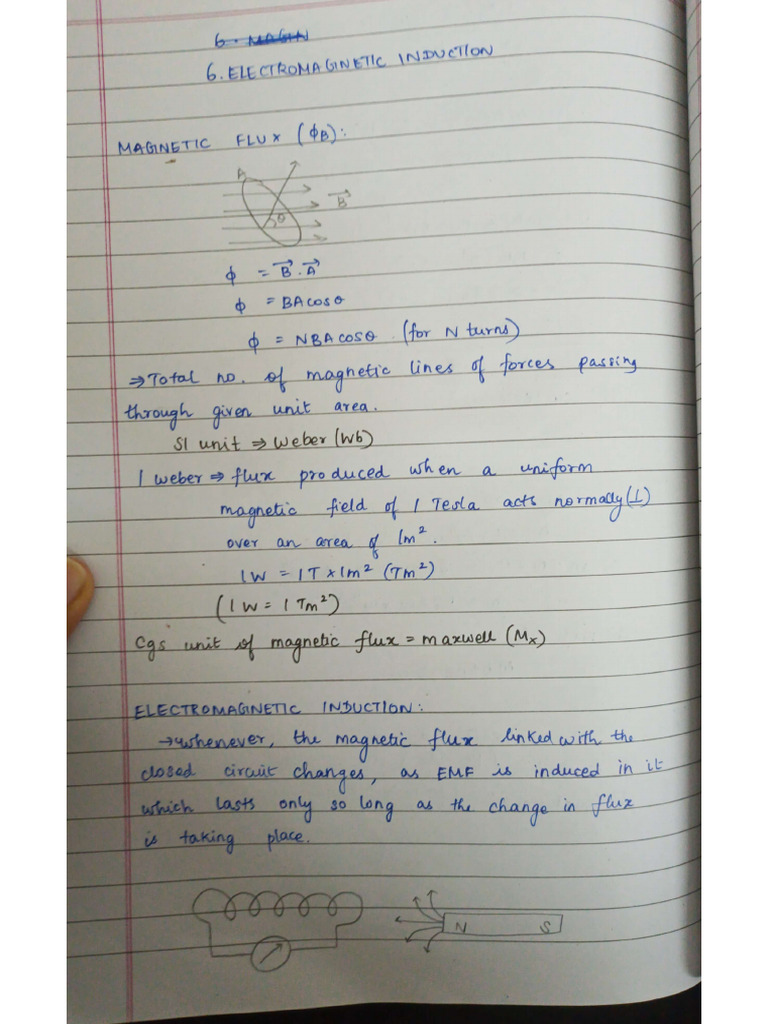 6. MAGIN
6. ELECTROMAGINETIC INDUCTION
MAGINETIC FLUX (ϕB):
A
θ
B⃗
ϕ = B⃗ . A⃗
ϕ = BA cosθ
ϕ = NBA cosθ . (for N turns)
⇒ Total no. of magnetic lines of forces passing
through given unit area.
SI unit ⇒ Weber (Wb)
1 weber ⇒ flux produced when a uniform
magnetic field of 1 Tesla acts normally (⊥)
over an area of 1m²
1W = 1T × 1m² (Tm²)
(1 W = 1 Tm²)
Cgs unit of magnetic flux = maxwell (Mx)
ELECTROMAGINETIC INDUCTION:
→ whenever, the magnetic flux linked with the
closed circuit changes, as EMF is induced in it
which lasts only so long as the change in flux
is taking place.
N S